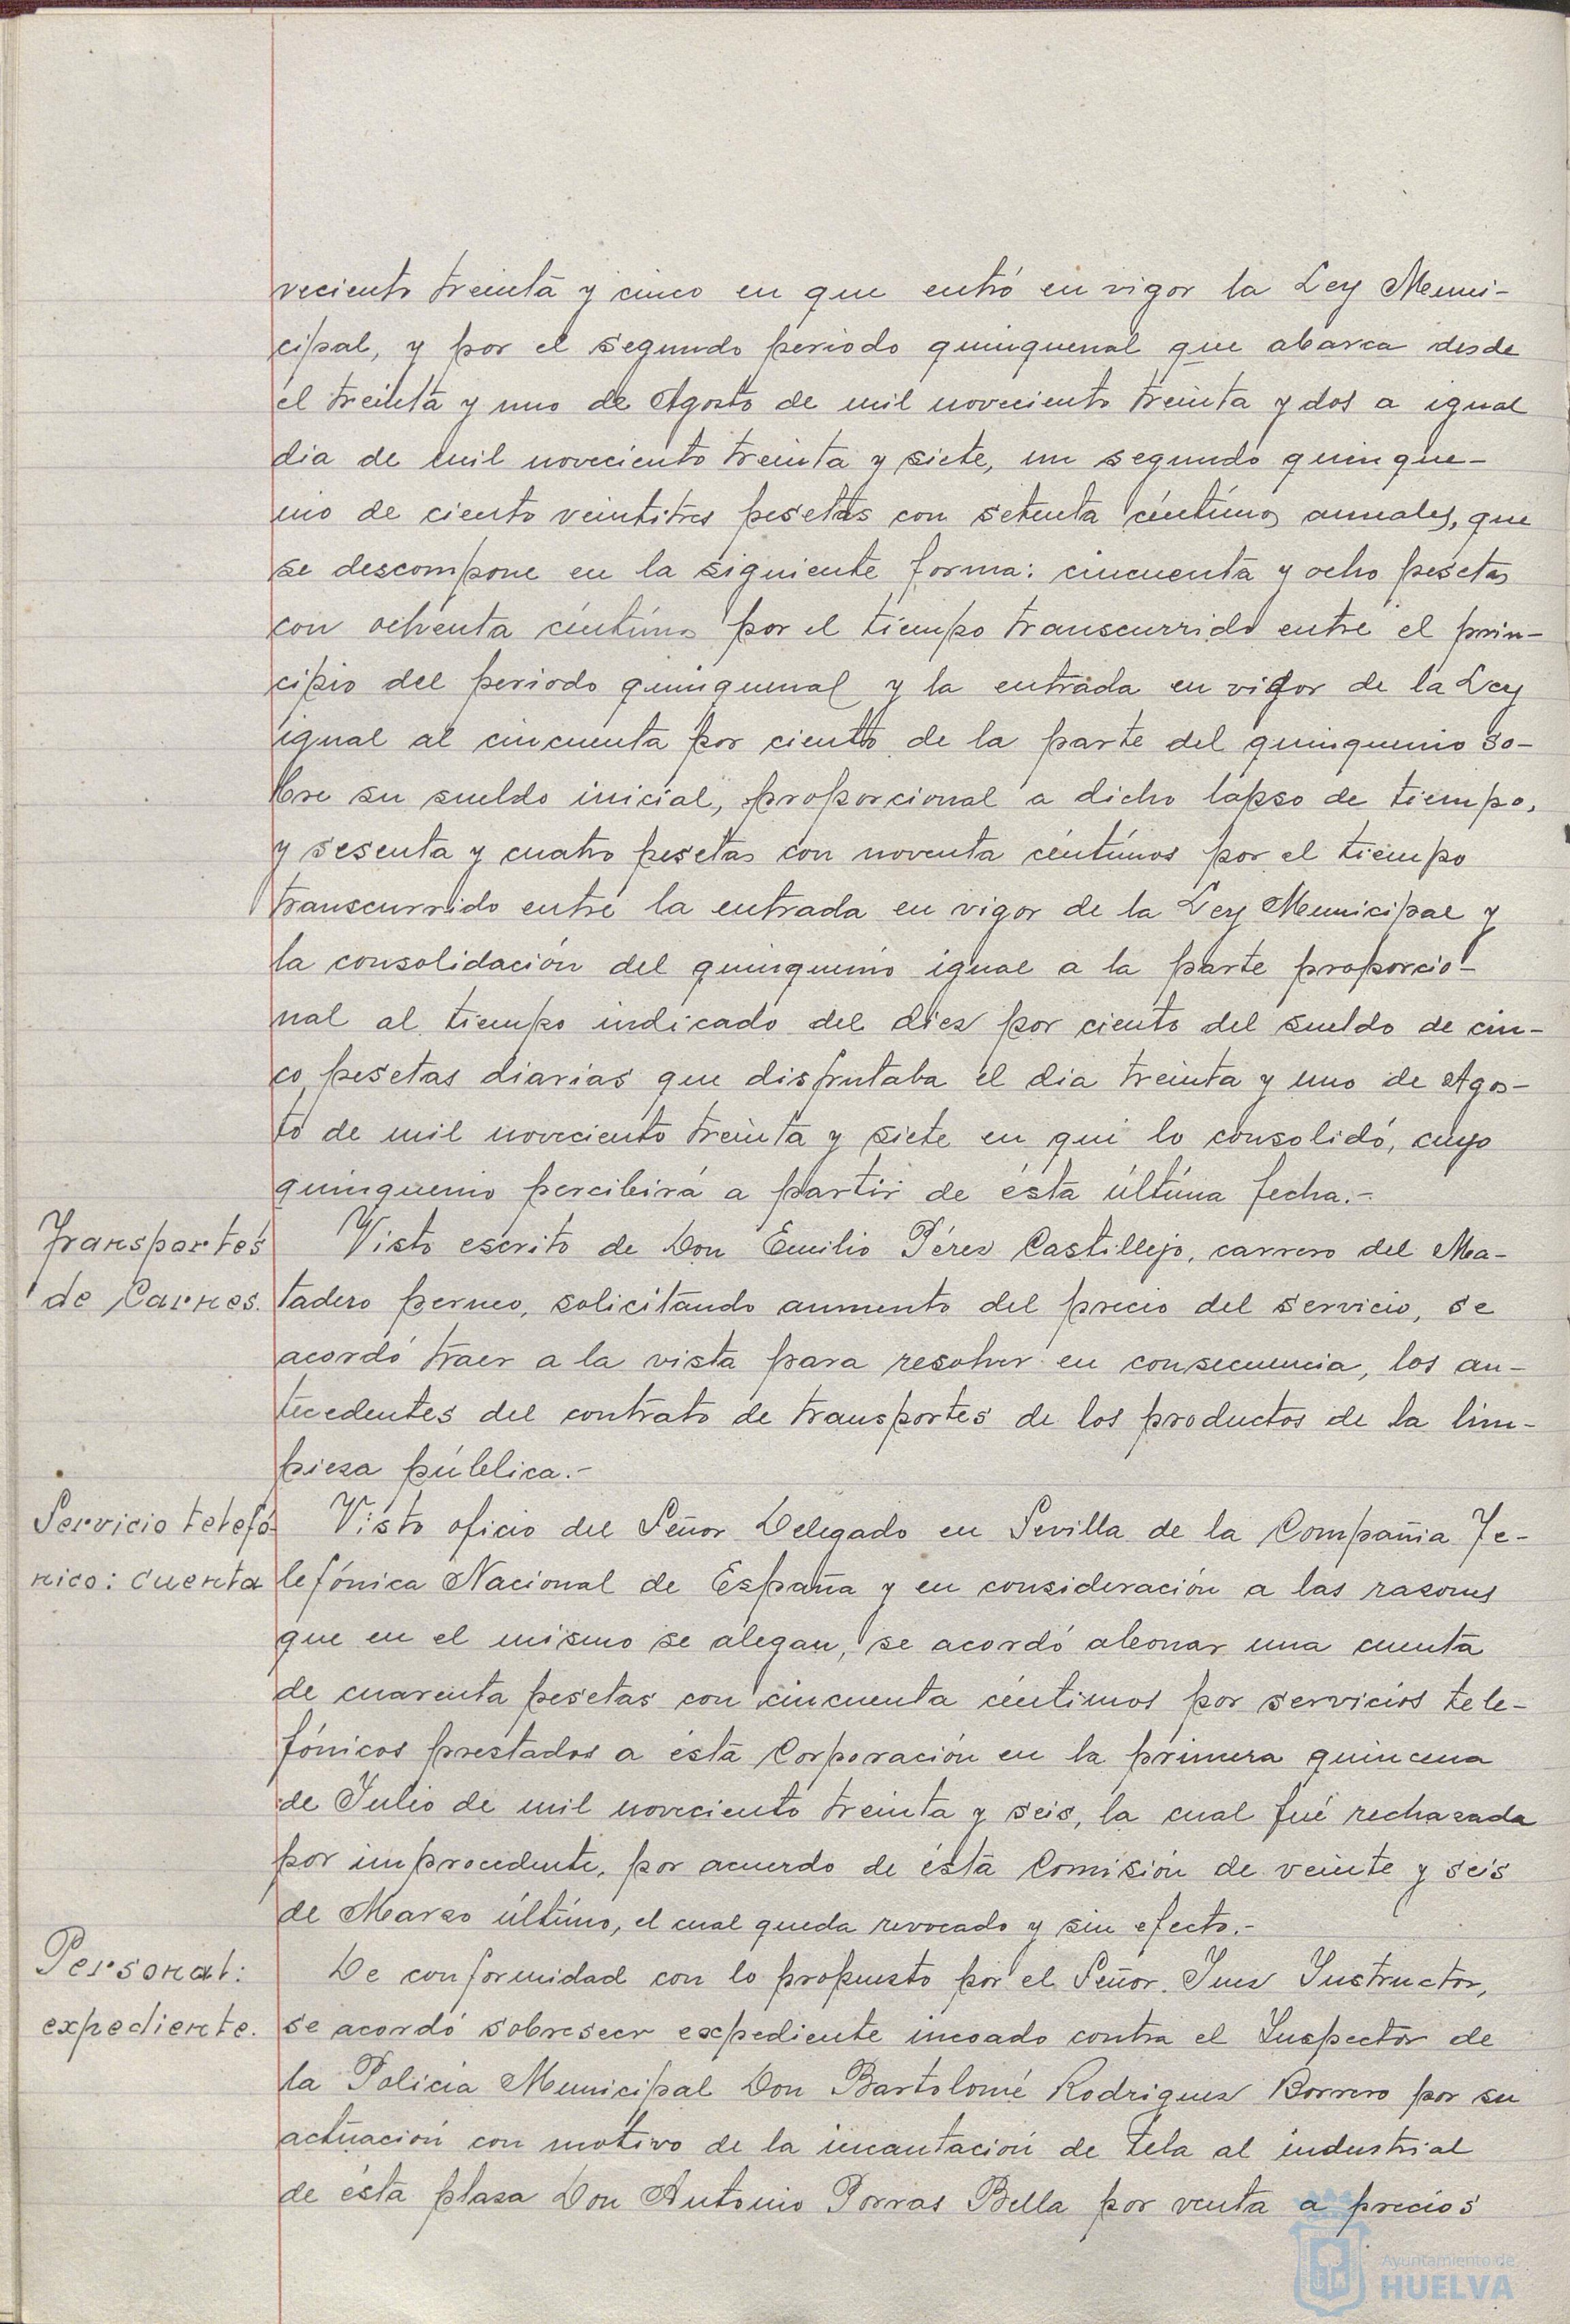 veciento treinta y cinco en que entró en vigor la Ley Muni-
cipal, y por el segundo periodo quinquenal que abarca desde
el treinta y uno de Agosto de mil noveciento treinta y dos a igual
dia de mil noveciento treinta y siete, un segundo quinque-
nio de ciento veintitres pesetas con setenta céntimos anuales, que
se descompone en la siguiente forma: cincuenta y ocho pesetas
con ochenta céntimos por el tiempo transcurrido entre el prin-
cipio del periodo quinquenal y la entrada en vigor de la Ley
igual al cincuenta por ciento de la parte del quinquenio so-
bre su sueldo inicial, proporcional a dicho lapso de tiempo,
y sesenta y cuatro pesetas con noventa céntimos por el tiempo
transcurrido entre la entrada en vigor de la Ley Municipal y
la consolidación del quinquenio igual a la parte proporcio-
nal al tiempo indicado del diez por ciento del sueldo de cin-
co pesetas diarias que disfrutaba el dia treinta y uno de Agos-
to de mil noveciento treinta y siete en qui lo consolidó, cuyo
quinquenio percibirá a partir de ésta última fecha.-
Transportes
de Carnes.
Visto escrito de Don Emilio Pérez Castillejo, carrero del Ma-
tadero perneo, solicitando aumento del precio del servicio, se
acordó traer a la vista para resolver en consecuencia, los an-
tecedentes del contrato de transportes de los productos de la lim-
pieza pública.-
Servicio telefó-
nico: cuenta
Visto oficio del Señor Delegado en Sevilla de la Compañia Te-
lefónica Nacional de España y en consideración a las razones
que en el mismo se alegan, se acordó abonar una cuenta
de cuarenta pesetas con cincuenta céntimos por servicios tele-
fónicos prestados a ésta Corporación en la primera quincena
de Julio de mil noveciento treinta y seis, la cual fué rechazada
por improcedente, por acuerdo de ésta Comisión de veinte y seis
de Marzo último, el cual queda revocado y sin efecto.-
Personal:
expediente.
De conformidad con lo propuesto por el Señor Juez Instructor,
se acordó sobreseer expediente incoado contra el Inspector de
la Policia Municipal Don Bartolomé Rodriguez Borrero por su
actuación con motivo de la incautación de tela al industrial
de ésta plaza Don Antonio Porras Bella por venta a precios
Ayuntamiento de
HUELVA